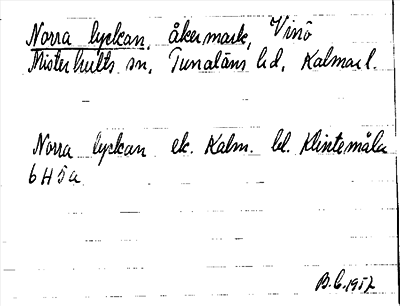 Norra lyckan, åkermark, Vinö
Misterhults sn, Tunaläns hd, Kalmar l.
Norra lyckan ek. Kalm. bl. Klintemåla
6H5a
B.C. 1957